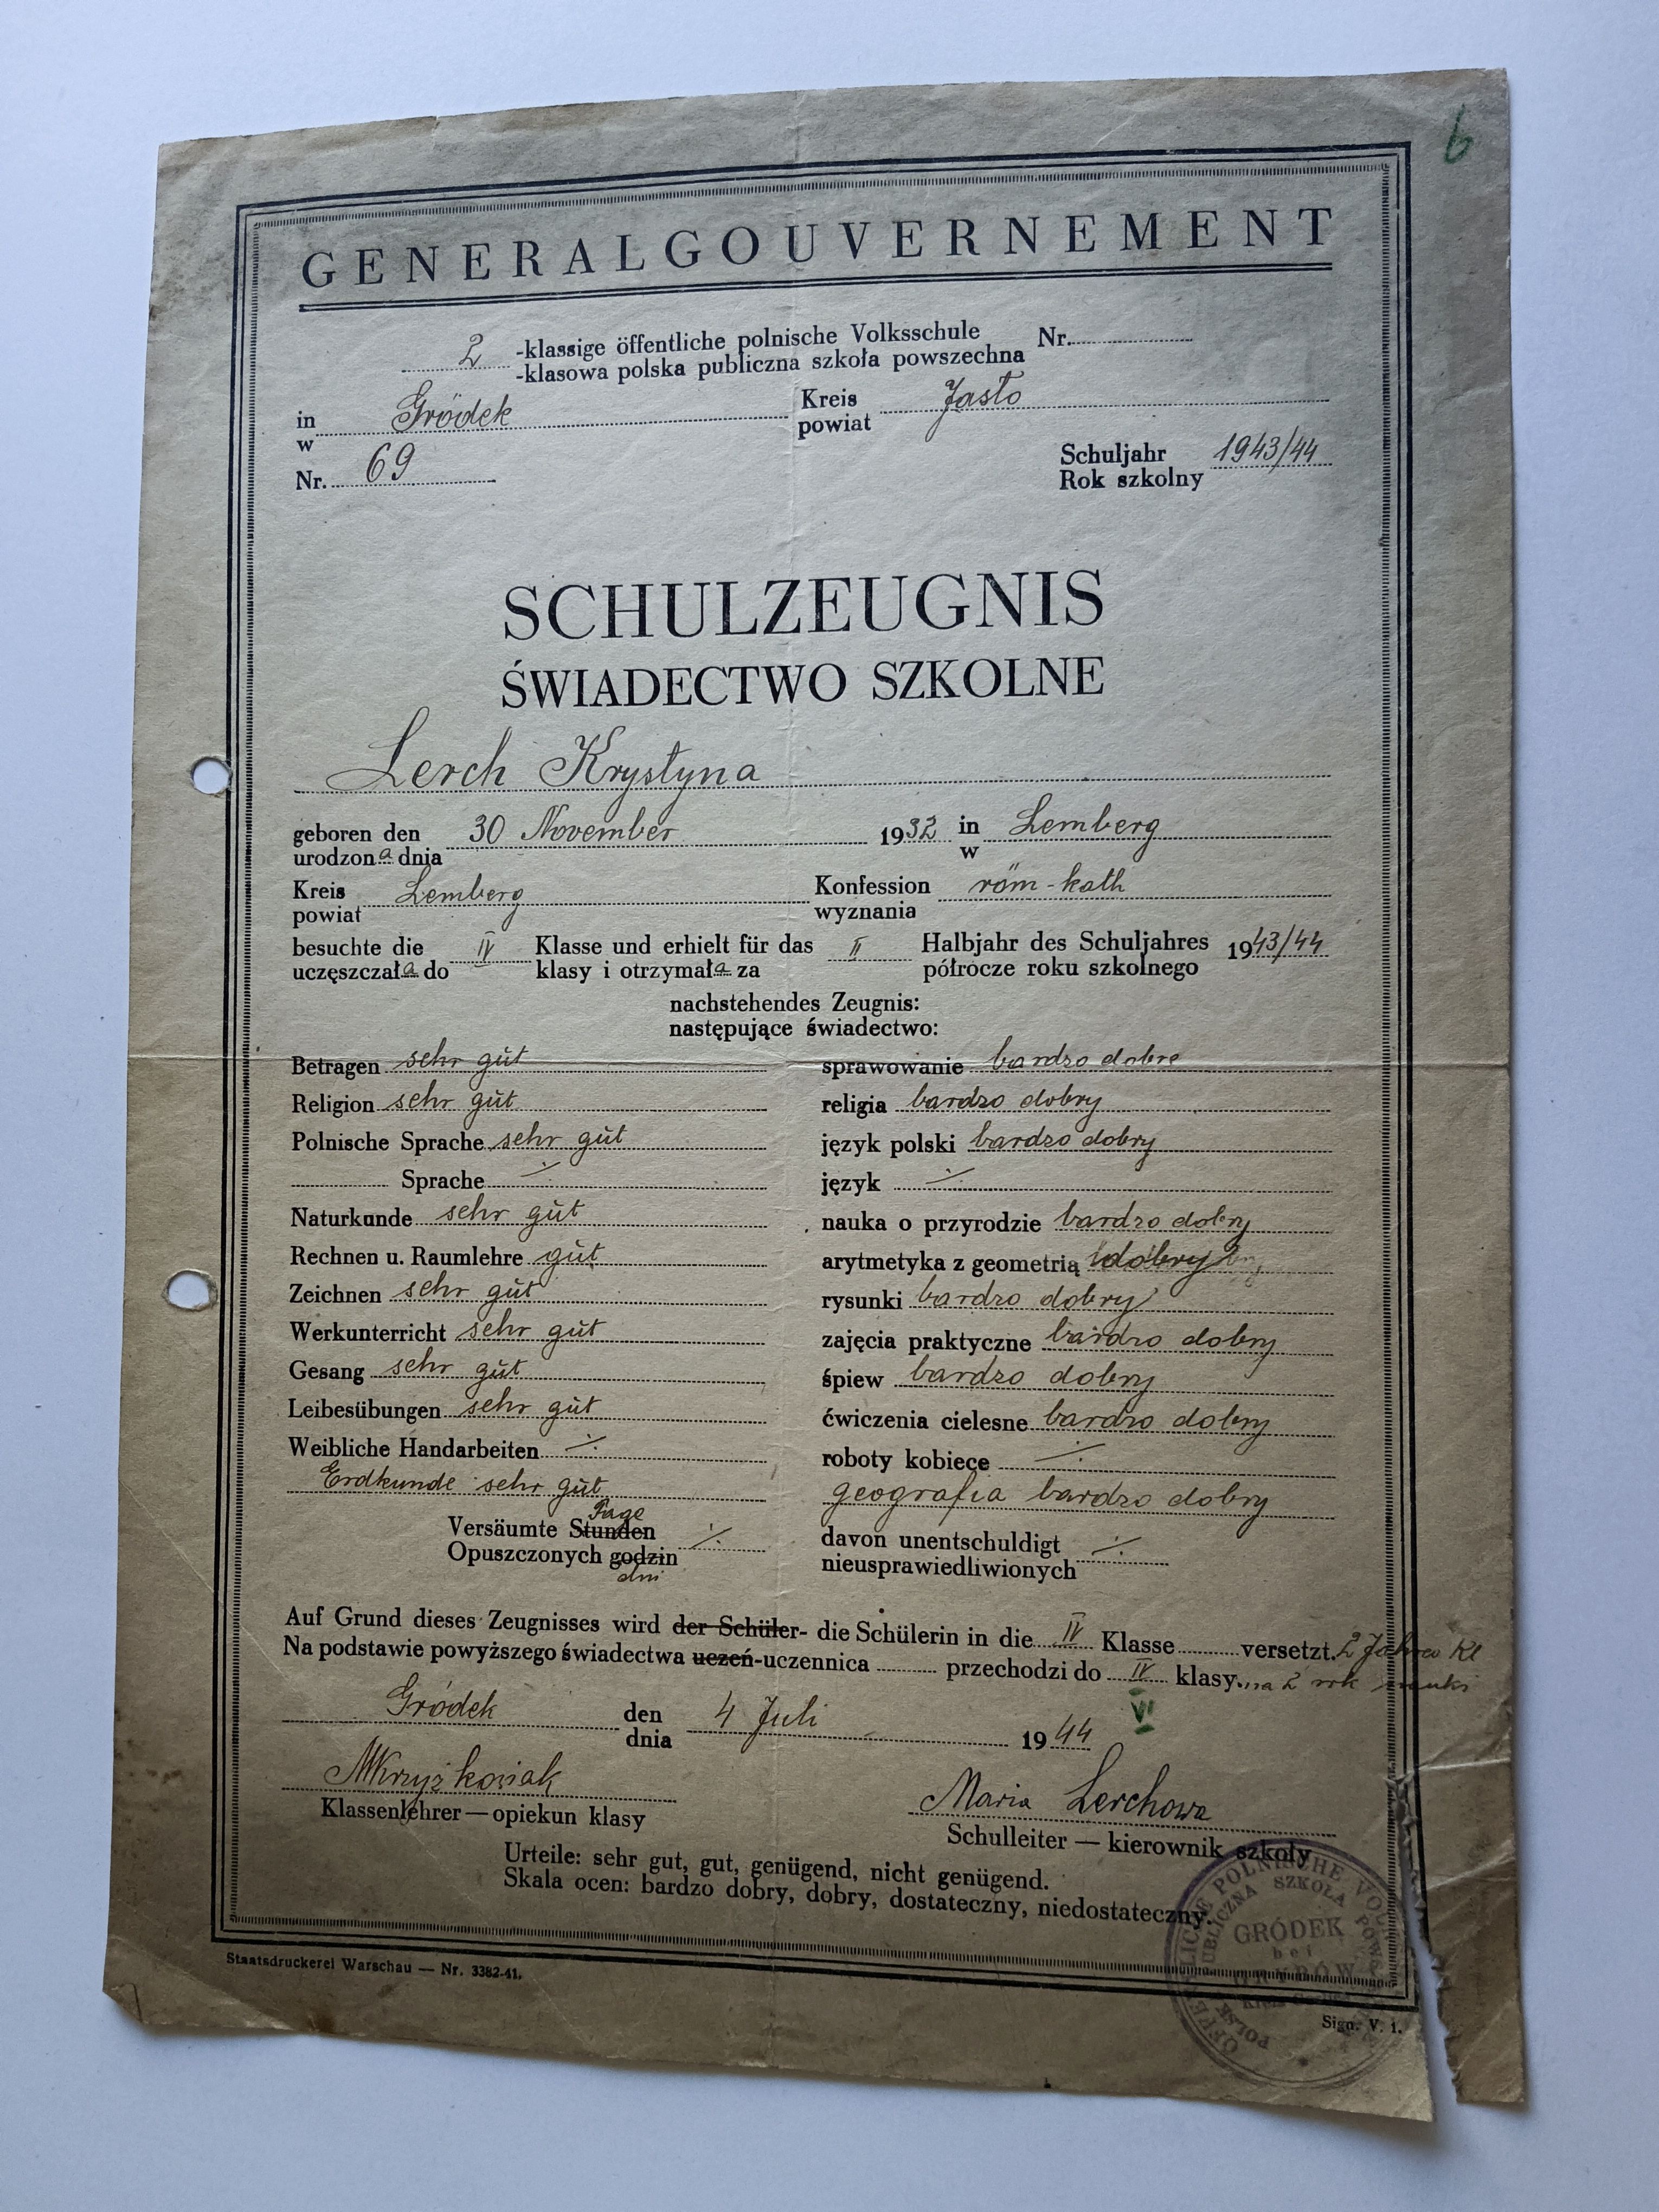 6
GENERALGOUVERNEMENT
2 -klassige öffentliche polnische Volksschule Nr.
-klasowa polska publiczna szkoła powszechna
in Gródek Kreis Jasło
w powiat
Nr. 69 Schuljahr 1943/44
Rok szkolny
SCHULZEUGNIS
ŚWIADECTWO SZKOLNE
Lerch Krystyna
geboren den 30 November 1932 in Lemberg
urodzona dnia w
Kreis Lemberg Konfession röm-kath
powiat wyznania
besuchte die IV Klasse und erhielt für das II Halbjahr des Schuljahres 1943/44
uczęszczała do klasy i otrzymała za półrocze roku szkolnego
nachstehendes Zeugnis:
następujące świadectwo:
Betragen sehr gŭt sprawowanie bardzo dobre
Religion sehr gŭt religia bardzo dobry
Polnische Sprache sehr gŭt język polski bardzo dobry
Sprache ⁒ język ⁒
Naturkunde sehr gŭt nauka o przyrodzie bardzo dobry
Rechnen u. Raumlehre gŭt arytmetyka z geometrią dobry
Zeichnen sehr gŭt rysunki bardzo dobry
Werkunterricht sehr gŭt zajęcia praktyczne bardzo dobry
Gesang sehr gŭt śpiew bardzo dobry
Leibesübungen sehr gŭt ćwiczenia cielesne bardzo dobry
Weibliche Handarbeiten ⁒ roboty kobiece ⁒
Erdkunde sehr gŭt geografia bardzo dobry
Tage
Versäumte Stunden ⁒ davon unentschuldigt ⁒
Opuszczonych godzin nieusprawiedliwionych
dni
Auf Grund dieses Zeugnisses wird der Schüler- die Schülerin in die IV Klasse versetzt. 2 Kl
Na podstawie powyższego świadectwa uczeń-uczennica przechodzi do IV klasy. na 2 rok nauki
VI
Gródek den 4 Juli 1944
dnia
MKrzyżkowiak Maria Lerchowa
Klassenlehrer — opiekun klasy Schulleiter — kierownik szkoły
Urteile: sehr gut, gut, genügend, nicht genügend.
Skala ocen: bardzo dobry, dobry, dostateczny, niedostateczny.
POLNISCHE
SZKOŁA
GRÓDEK
bei
Staatsdruckerei Warschau — Nr. 3382-41.
Sign. V. 1.